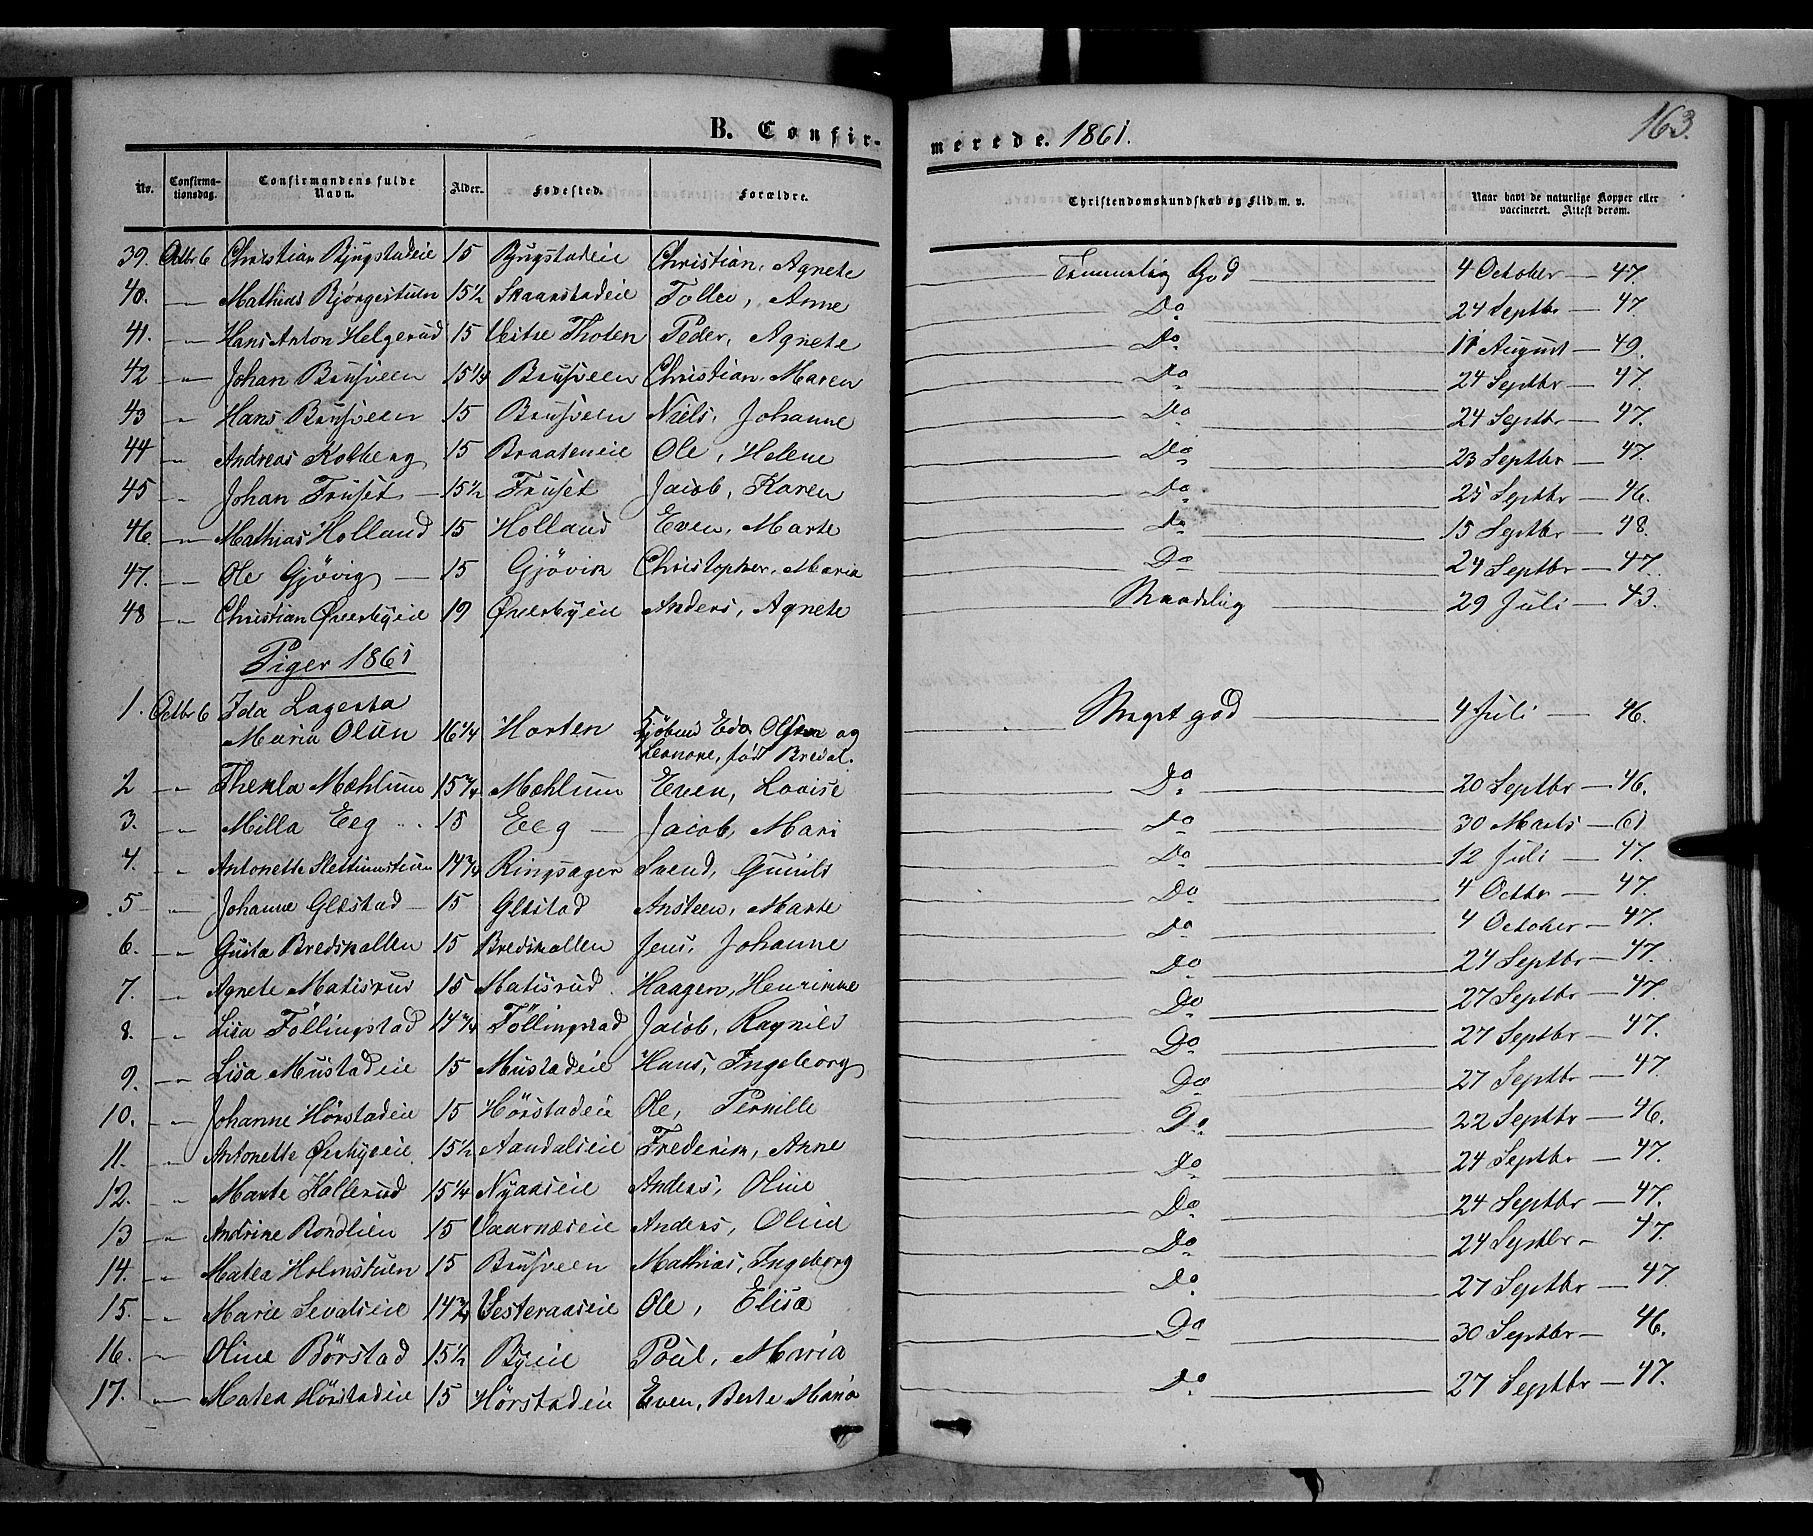 B. Confirmerede. 1861. 163.
No. Confirmationsdag. Confirmandens fulde Navn. Alder. Fødested. Forældre. Christendomskundskab og Flid m. v. Naar havt de naturlige Kopper eller vaccineret. Attest derom.
39. Octbr 6 Christian Bjugstadeie 15 Bjugstadeie Christian, Agnete Temmelig God 4 October - 47.
40. -"- Mathias Bjørgestuen 15½ Skaarstadeie Tollev, Anne Do 24 Septbr - 47
41. -"- Hans Anton Helgerud 15 Vestre Thoten Peder, Agnete Do 11 August - 49.
42 -"- Johan Brusveen 15¼ Brusveen Christian, Maren Do 24 Septbr - 47.
43 -"- Hans Brusveen 15 Brusveen Niels, Johanne Do 24 Septbr - 47.
44 -"- Andreas Kolberg 15 Braateneie Ole, Helene Do 23 Septbr - 47.
45 -"- Johan Fruset - 15½ Fruset Jacob, Karen Do 25 Septbr - 46.
46. -"- Mathias Holland 15 Holland Even, Marte Do 15 Septbr - 48.
47. -"- Ole Gjøvig - 15 Gjøvik Christopher, Maria Do 24 Septbr - 47.
48 -"- Christian Øverbyeie 19 Øverbyeie Anders, Agnete Maadelig 29 Juli - 43.
Piger 1861
1. Octbr 6 Ida Lagerta
Maria Olsen 16¼ Horten Kjøbmd Edv. Olsen og Meget god 4 Juli - 46.
Leonore, fød Bredal.
2 -"- Thekla Mæhlum 15¾ Mæhlum Even, Lovise Do 20 Septbr - 46.
3. -"- Milla Eeg 18 Eeg - Jacob, Mari Do 30 Marts - 61
4. -"- Antonette Slettumstuen 14¾ Ringsager Svend, Gunild Do 12 Juli - 47.
5 -"- Johanne Glæstad - 15 Glæstad Ansteen, Marte Do 4 Octbr - 47.
6. -"- Gusta Bredskallen 15 Bredskallen Jens, Johanne Do 4 October - 47.
7. -"- Agnete Matisrud 15 Matisrud Haagen, Henrikke Do 24 Septbr - 47.
8. -"- Lisa Föllingstad 14¾ Föllingstad Jacob, Ragnild Do 27 Septbr - 47.
9. -"- Lisa Mustadeie 15 Mustadeie Hans, Ingeborg Do 27 Septbr - 47.
10. -"- Johanne Hørstadeie 15 Hørstadeie Ole, Pernille Do 27 Septbr - 47.
11. -"- Antonette Øerbyeie 15½ Aandalseie Frederik, Anne Do 22 Septbr - 46.
12. -"- Marte Hallerud 15¼ Nyaaseie Anders, Oline Do 24 Septbr - 47.
13 -"- Andrine Rondlien 15 Vaarnæseie Anders, Olive Do 24 Septbr - 47.
14. -"- Matea Holmstuen 15 Brusveen Mathias, Ingeborg Do 24 Septbr - 47.
15. -"- Marie Sevalseie 14¾ Vesteraaseie Ole, Elisa Do 27 Septbr - 47.
16. -"- Oline Børstad 15½ Byeie Poul, Maria Do 30 Septbr - 46.
17. -"- Matea Hørstadeie 15 Hørstadeie Even, Berte Maria Do 27 Septbr - 47.